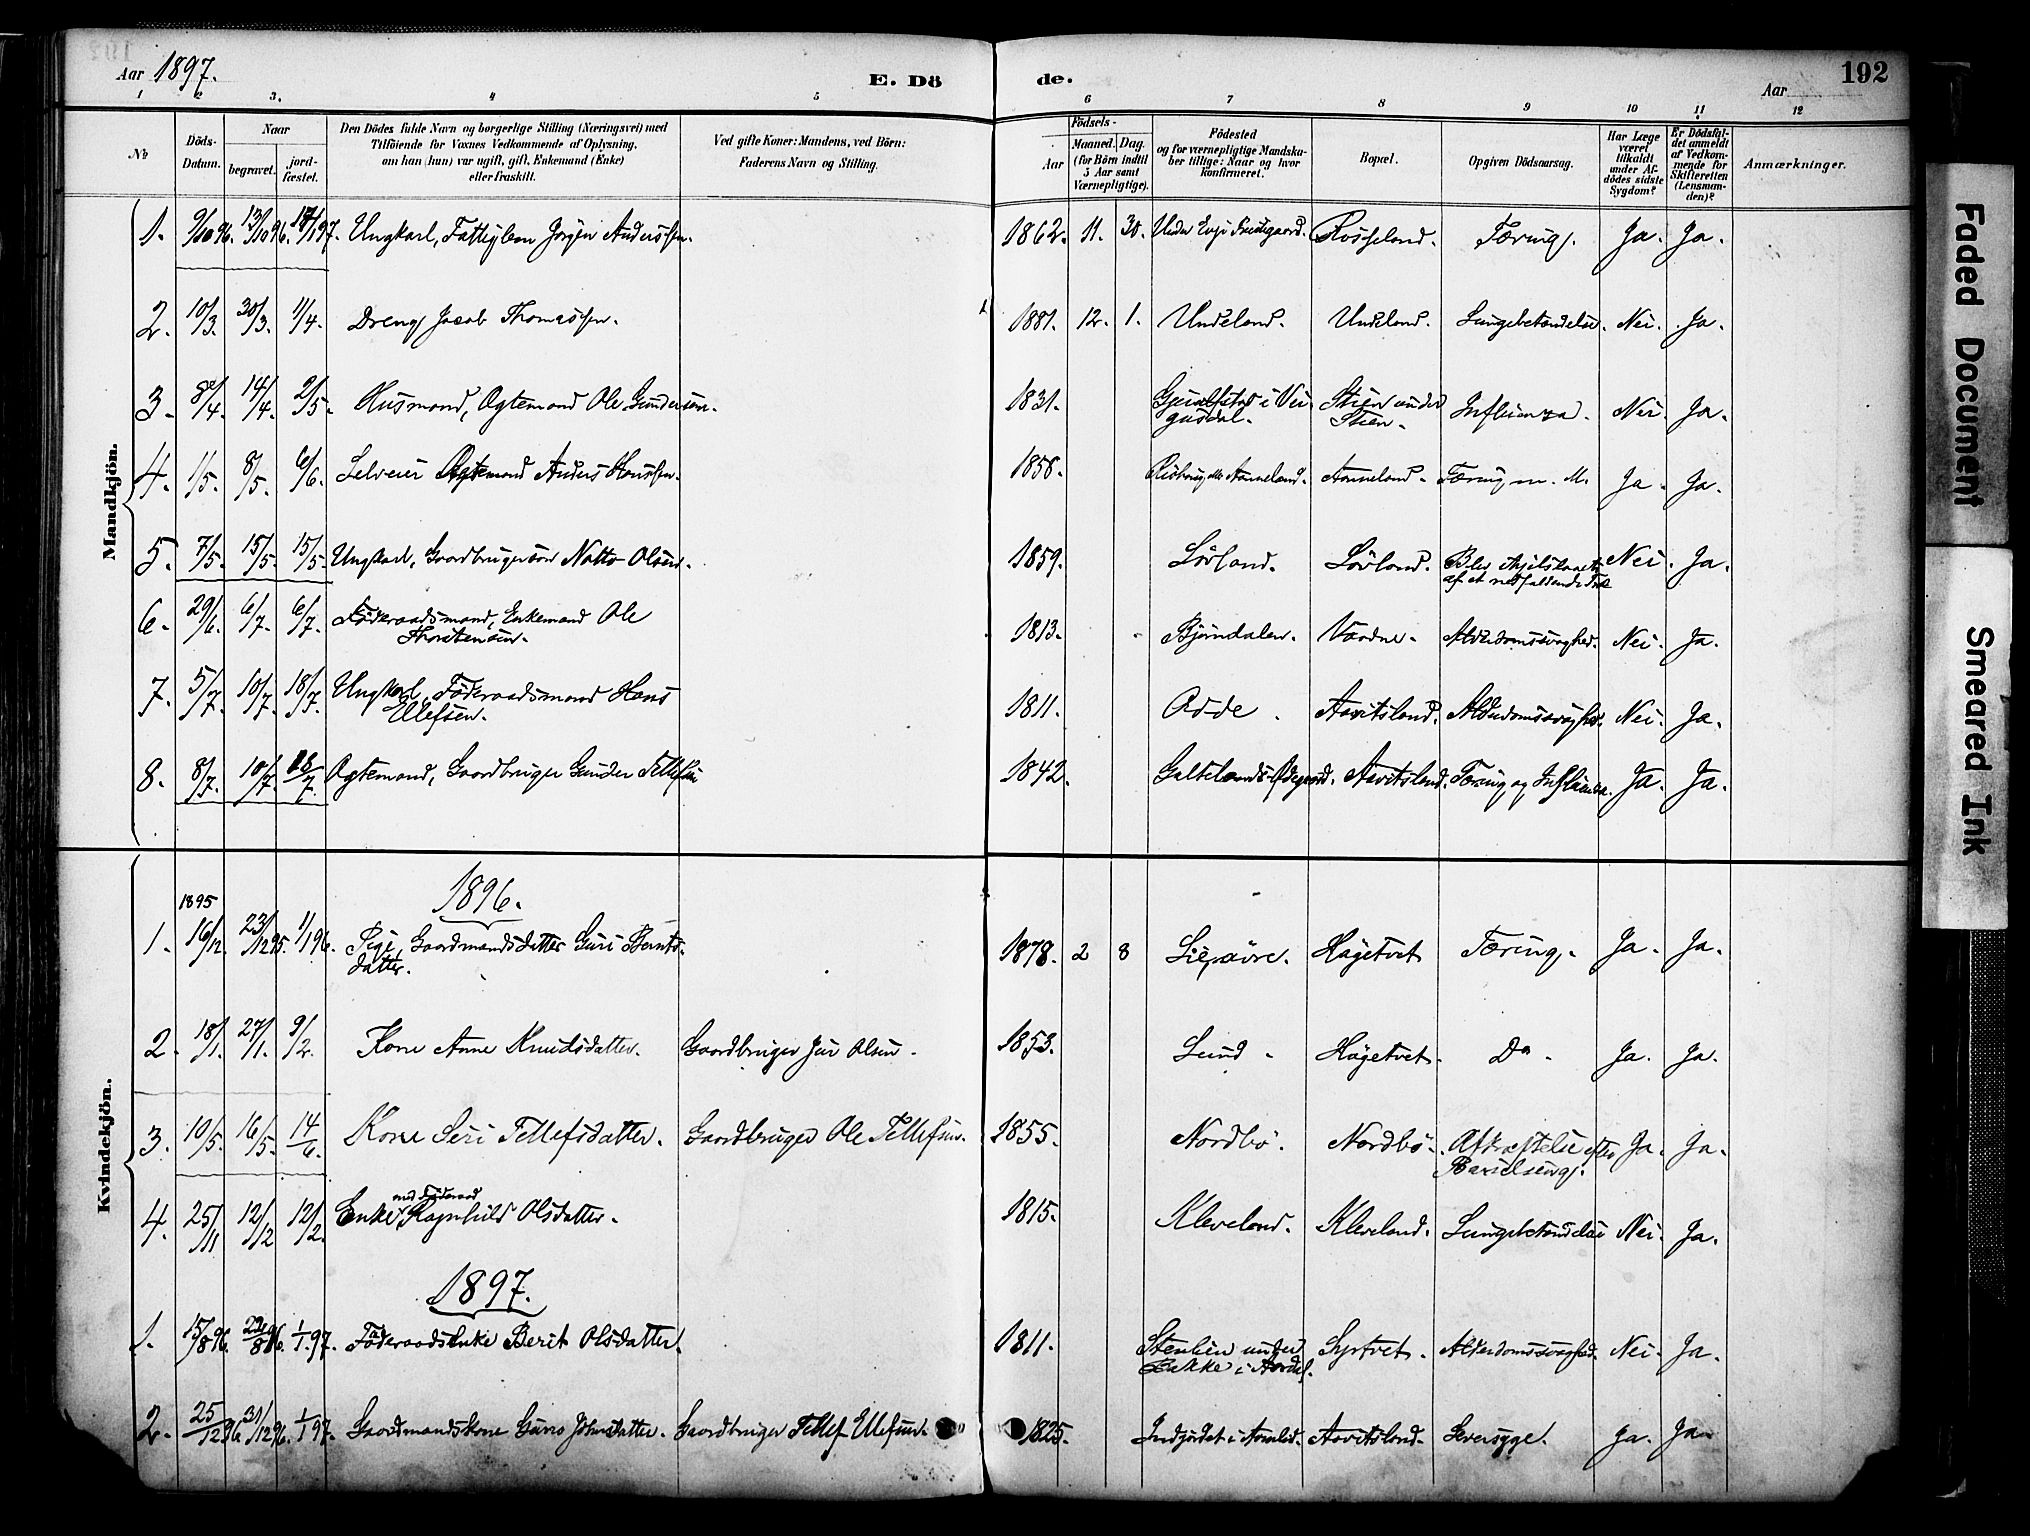 Aar 1897.
E. Dö
de.
Aar
192
1 2 3. 4 5 6 7 8 9 10 11 12
No
Döds-Datum.
Naar
begravet.
jord-fæstet.
Den Dödes fulde Navn og borgerlige Stilling (Næringsvei) med
Tilföiende for Voxnes Vedkommende af Oplysning,
om han (hun) var ugift, gift, Enkemand (Enke)
eller fraskilt.
Ved gifte Koner: Mandens, ved Börn:
Faderens Navn og Stilling.
Födsels-
Aar
Maaned. Dag.
(for Börn indtil
5 Aar samt
Værnepligtige).
Födested
og for værnepligtige Mandska-
ber tillige: Naar og hvor
konfirmeret.
Bopæl.
Opgiven Dödsaarsag.
Har Læge
været
tilkaldt
under Af-
dödes sidste
Sygdom?
Er Dödsfal-
det anmeldt
af Vedkom-
mende for
Skifteretten
(Lensman-
den)?
Anmærkninger.
Mandkjön.
1. 9/10 96. 13/10 96. 17/1 97. Ungkarl, Fattiglem Jörgen Anderssen. 1862. 11. 30. Under Evje Rosseland. Tæring. Ja. Ja.
2. 10/3. 30/3. 11/4. Dreng Jacob Thomassen. 1881. 12. 1. Undeland. Undeland. Lungebetændelse. Nei. Ja.
3. 8/4. 14/4. 2/5. Husmand, Ægtemand Ole Gundersen. 1831. i Vei-
gusdal. Stien under
Stien. Influenza. Nei. Ja.
4. 1/5. 8/5. 6/6. Selveier Ægtemand Anders Hanssen. 1858. Aanneland. Aanneland. Tæring m. M. Ja. Ja.
5. 7/5. 15/5. 15/5. Ungkarl, Gaardbrugersön Notto Olsen. 1859. Lövland. Lövland. Blev ihjelslaaet
af et nedfaldende Træ Nei. Ja.
6. 29/6. 6/7. 6/7. Föderaadsmand, Enkemand Ole
Thorstensen. 1813. Björndalen. Vaardne. Alderdomssvaghed. Nei. Ja.
7. 5/7. 10/7. 18/7. Ungkarl, Föderaadsmand Hans
Ellefsen. 1811. Odde. Aavitsland. Alderdomssvaghed. Nei. Ja.
8. 8/7. 10/7. 18/7. Ægtemand, Gaardbruger Gunder Tellefsen 1842. Galtelands Ödegaard. Aavitsland. Tæring og Influenza. Ja. Ja.
Kvindekjön.
1896.
1895
1. 16/12. 23/12 95. 1/1 96. Pige, Gaardmandsdatter Guri Berntsdatter. 1878. 2 8 Högetvet Tæring. Ja. Ja.
2. 18/1. 27/1. 9/2. Kone Anne Knudsdatter. Gaardbruger Jur Olsen. 1853. Lund. Högetvet. Do. Ja. Ja.
3. 10/5. 16/5. 14/6. Kone Siri Tellefsdatter. Gaardbruger Ole Tellefsen. 1855. Nordbö. Nordbö. Afkræftelse efter
Barselseng. Ja. Ja.
4. 25/11 12/12 12/2. Enke med Föderaad Ragnhild Olsdatter. 1815. Kleveland. Kleveland. Lungebetændelse Nei. Ja.
1897.
1. 15/8 96. 22/8 96. 1/1 97. Föderaadsenke Berit Olsdatter. 1811. Stenlien under
Bakke i Aardal. Syrtvet. Alderdomssvaghed. Nei. Ja.
2. 25/12 96 31/12 96. 1/1 97. Gaardmandskone Guro Johnsdatter. Gaardbruger Tellef Ellefsen. 1825. i Aamlid. Aavitsland. Leversyge. Ja. Ja
Faded Document
Smeared Ink